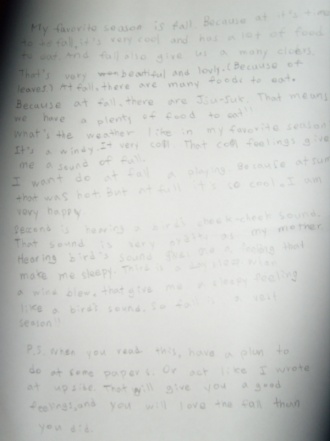 My favorite season is fall. Because at it's time
to to fall, it's very cool and has a lot of food
to eat and fall also give us a many
That's very beautiful and lovly. (Because of
leaves) At fall, there are many foods to eat.
Because at fall, there are Jiu-Suk. That means
we have a plenty of food to eat!!
What's the weather like in my favorite season
It's a windy. It very cool. That cool feelings give
me a sound of fall.
I want do at fall a playing. Because at sum
that was hot. But at fall it's so cool, I am
very happy
Second is hearing a bird's sound.
That sound is very as my mother.
Hearing bird's sound
make me sleepy. This is a
a wind blow, that give me a sleepy feeling
like a bird's sound. So fall is a
season!!
P.S. When you read this, have a plan to
do at some papers. Or act like I wrote
at upside. That will give you a good
feelings, and you will love the fall than
you did.